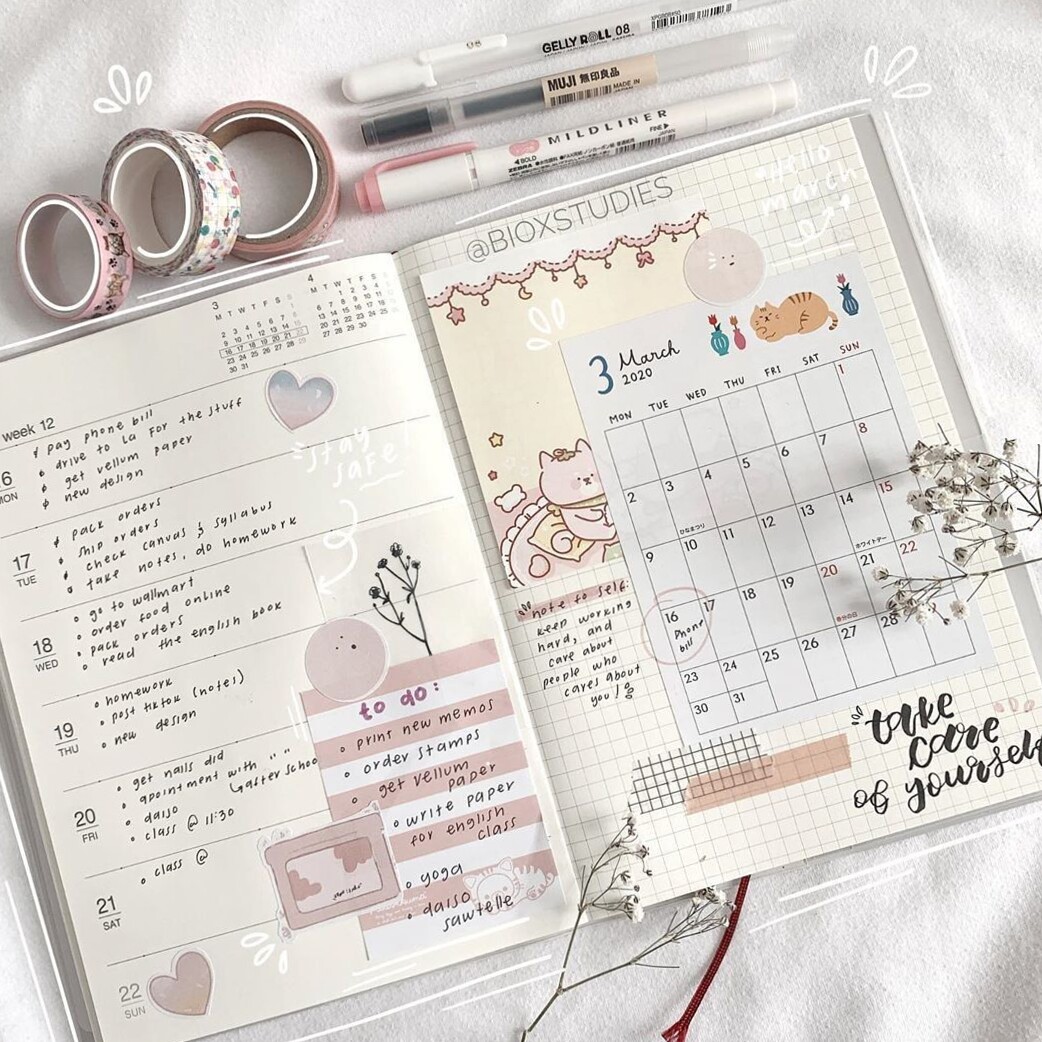 08
GELLY ROLL 08
MUJI 無印良品
MADE IN
JAPAN
MILDLINER
◄BOLD
FINE►
ZEBRA
JAPAN
@BIOXSTUDIES
hello
march
3
M T W T F S S
1
2 3 4 5 6 7 8
9 10 11 12 13 14 15
16 17 18 19 20 21 22
23 24 25 26 27 28 29
30 31
4
M T W T F S S
1 2 3 4 5
6 7 8 9 10 11 12
13 14 15 16 17 18 19
20 21 22 23 24 25 26
27 28 29 30
week 12
16
MON
pay phone bill
drive to la for the stuff
get vellum paper
new design
stay
safe!
17
TUE
pack orders
ship orders
check canvas & syllabus
take notes, do homework
18
WED
go to wallmart
order food online
pack orders
read the english book
19
THU
homework
post tiktok (notes)
new design
20
FRI
get nails did
apointment with " "
after school
daiso
class @ 11:30
21
SAT
class @
22
SUN
to do:
print new memos
order stamps
get vellum
paper
write paper
for english
class
yoga
daiso
sawtelle
3 March
2020
MON TUE WED THU FRI SAT SUN
1
2 3 4 5 6 7 8
ひなまつり
9 10 11 12 13 14 15
ホワイトデー
16 17 18 19 20 21 22
Phone
bill
春分の日
23 24 25 26 27 28
30 31
note to self:
keep working
hard, and
care about
people who
cares about
you!
take
care
of yourself